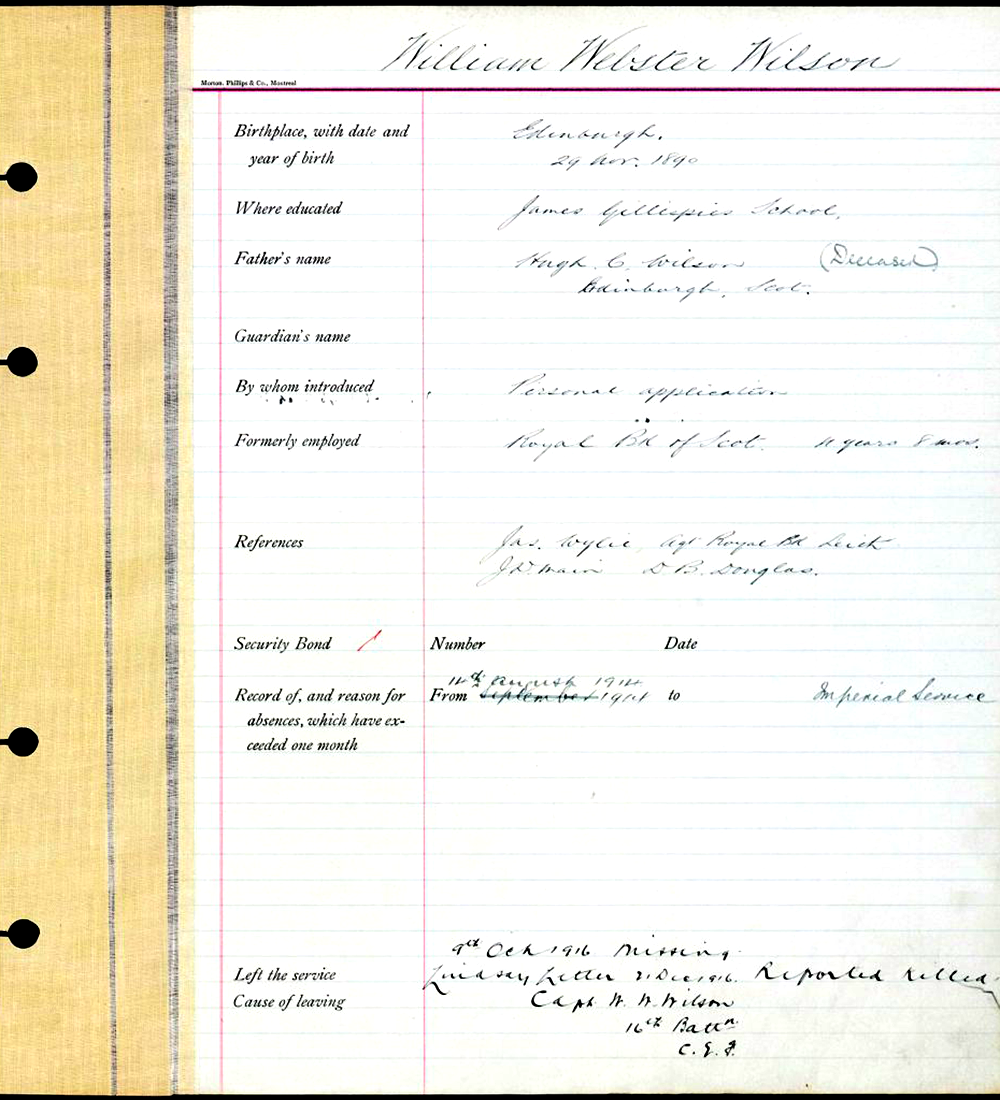 William Webster Wilson
Morton, Phillips & Co., Montreal
Birthplace, with date and Edinburgh.
year of birth 29 Nov. 1890
Where educated James Gillispies School,
Father's name Hugh C. Wilson (Deceased)
Edinburgh, Scot.
Guardian's name
By whom introduced Personal application
Formerly employed Royal Bk of Scot. 4 years 8 mos.
References Jas. Wylie, Agt Royal Bk Leith
J.D. Main D. B. Douglas.
Security Bond Number Date
14th August 1914
Record of, and reason for From September 1914 to Imperial Service
absences, which have ex-
ceeded one month
9th Oct 1916 Missing.
Left the service Lindsay letter 21 Dec 1916. Reported Killed
Cause of leaving Capt W. W. Wilson
16th Battn.
C. E. F.